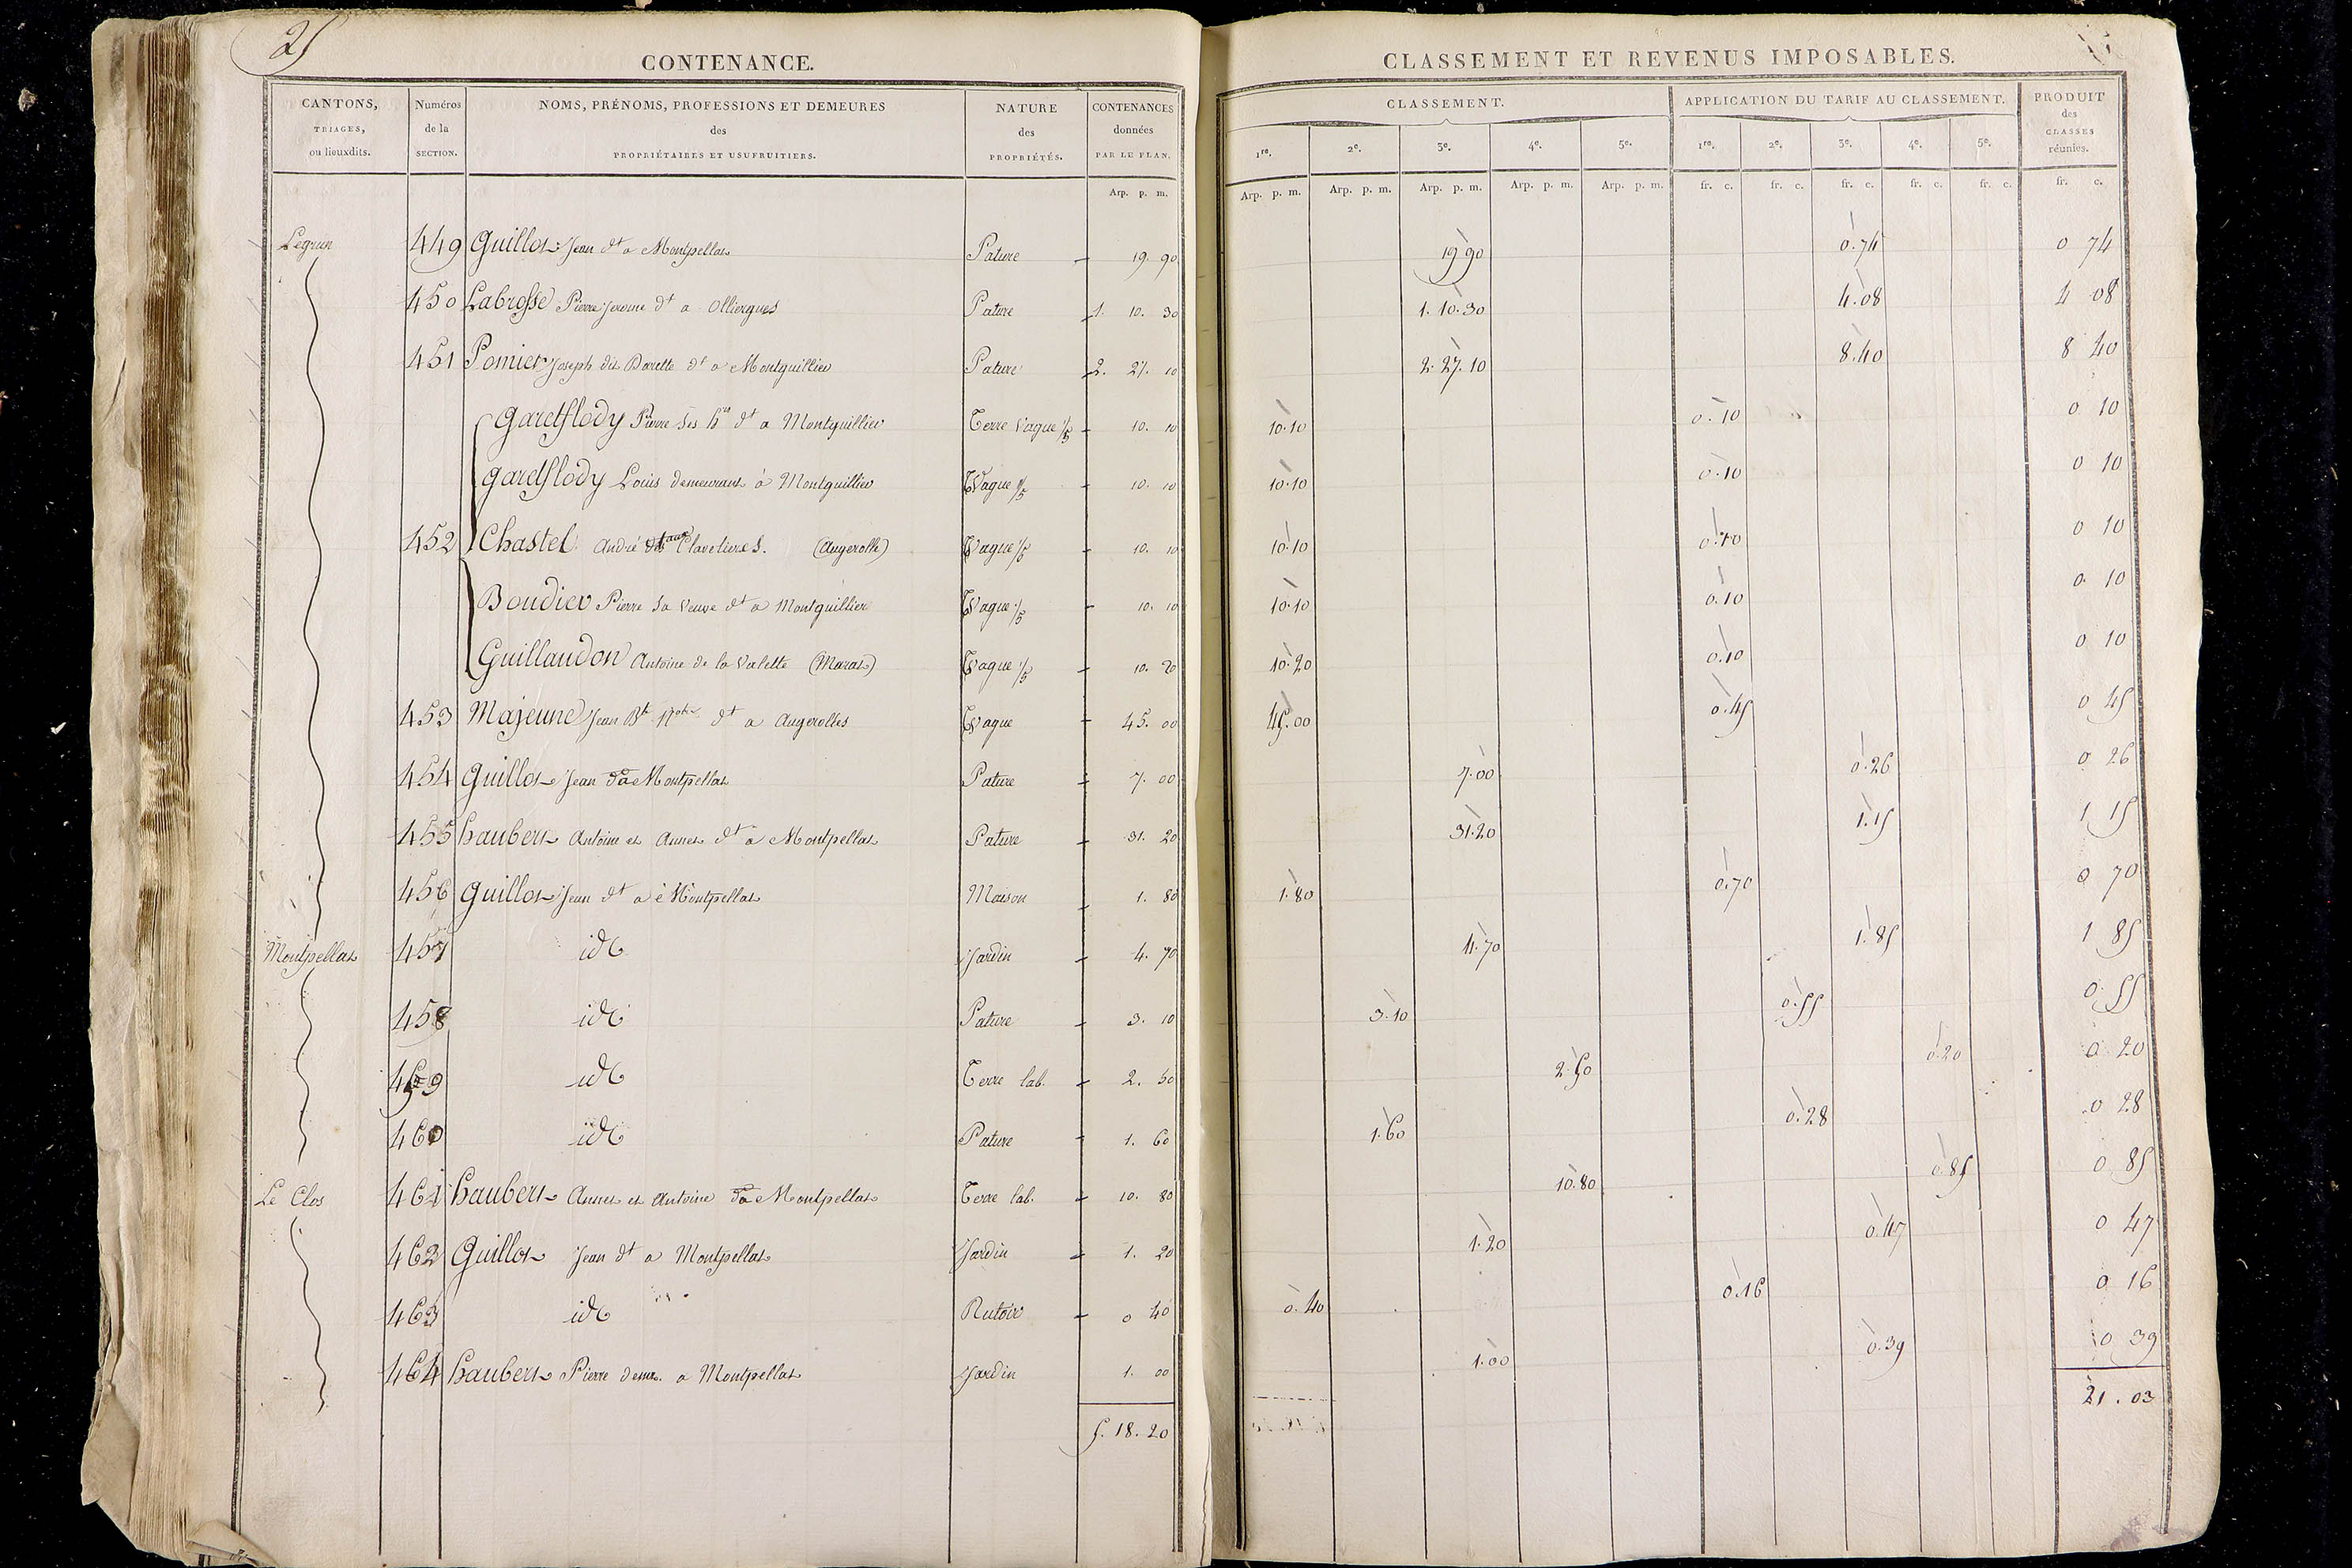 25
CONTENANCE.
CANTONS, TRIAGES, ou lieuxdits. | Numéros de la SECTION. | NOMS, PRÉNOMS, PROFESSIONS ET DEMEURES des PROPRIÉTAIRES ET USUFRUITIERS. | NATURE des PROPRIÉTÉS. | CONTENANCES données PAR LE PLAN.
Arp. p. m.
CLASSEMENT ET REVENUS IMPOSABLES.
CLASSEMENT. | APPLICATION DU TARIF AU CLASSEMENT. | PRODUIT des CLASSES réunies.
1re. 2e. 3e. 4e. 5e. 1re. 2e. 3e. 4e. 5e.
Arp. p. m. Arp. p. m. Arp. p. m. Arp. p. m. Arp. p. m. fr. c. fr. c. fr. c. fr. c. fr. c. fr. c.
Legrun 449 Guillot Jean dt a Montpellat Pature 19. 90 19 90 0.74 0 74
450 Labrosse Pierre Jerome dt a Olliergues Pature 1. 10. 30 1. 10. 30 4.08 4 08
451 Pomier Joseph dit Barette dt a Montguillier Pature 2. 27. 10 2. 27. 10 8.40 8 40
Garetflody Pierre Ses hrs dt a Montguillier Terre Vague 1/5 10. 10 10.10 0.10 0 10
Garetflody Louis demeurant à Montguillier T Vague 1/5 10. 10 10.10 0.10 0 10
452 Chastel André aux Clavelieres. (Augerolle) T Vague 1/5 10. 10 10.10 0.10 0 10
Boudier Pierre Sa Veuve dt a Montguillier T Vague 1/5 10. 10 10.10 0.10 0 10
Guillaudon Antoine de la Valette (Marat) T Vague 1/5 10. 20 10.20 0.10 0 10
453 Majeune Jean Bte Notre dt a Augerolles T Vague 45. 00 45.00 0.45 0 45
454 Guillot Jean dt a Montpellat Pature 7. 00 7.00 0.26 0 26
455 haubert Antoine et Annet dt a Montpellat Pature 31. 20 31.20 1.15 1 15
456 Guillot Jean dt a Montpellat Maison 1. 80 1.80 0.70 0 70
Montpellat 457 id Jardin 4. 70 4.70 1.85 1 85
458 id Pature 3. 10 3.10 0.55 0 55
459 id Terre lab. 2. 50 2.50 0.20 0 20
460 id Pature 1. 60 1.60 0.28 0 28
Le Clos 461 haubert Annet et Antoine dt a Montpellat Terre lab. 10. 80 10.80 0.85 0 85
462 Guillot Jean dt a Montpellat Jardin 1. 20 1.20 0.47 0 47
463 id Rutoir 0 40 0.40 0.16 0 16
464 haubert Pierre demt. a Montpellat Jardin 1. 00 1.00 0.39 0 39
5. 18. 20 21. 03